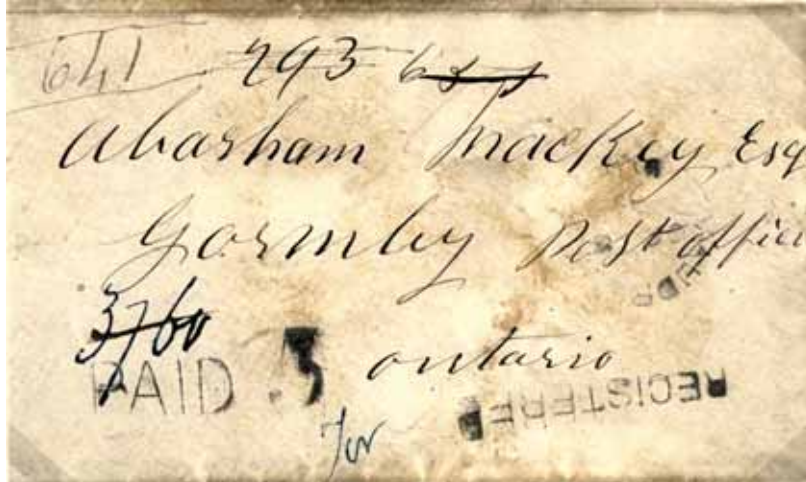 641 293
Abarham Mackey Esq
Gormley Post office
3760
ontario
PAID 3
REGISTERED